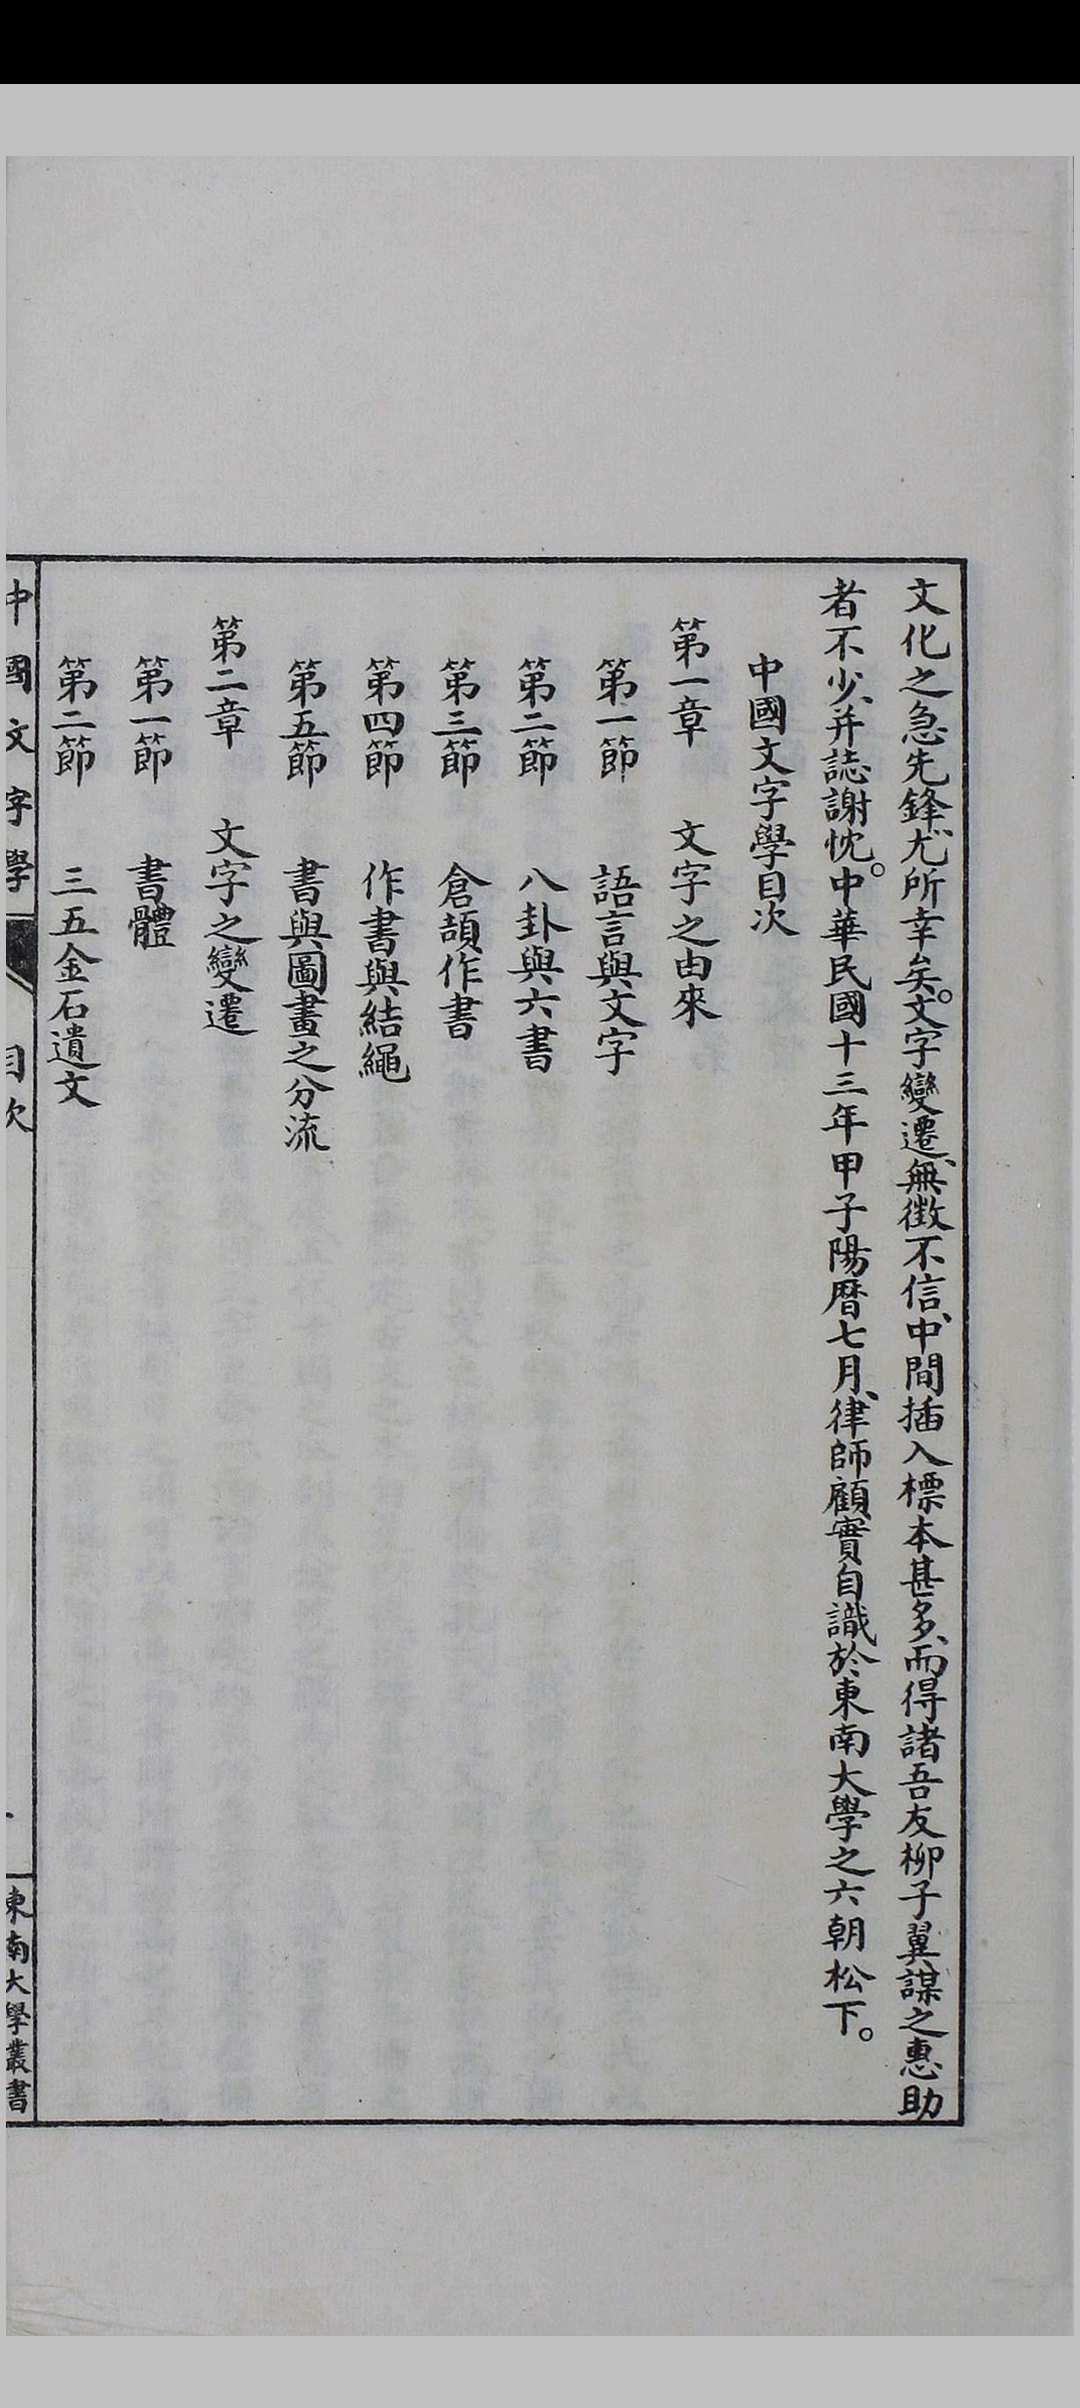 文化之急先鋒、尤所幸矣。文字變遷、無徵不信、中間插入標本甚多、而得諸吾友柳子翼謀之惠助
者不少、并誌謝忱。中華民國十三年甲子陽曆七月、律師顧實自識於東南大學之六朝松下。
中國文字學目次
第一章 文字之由來
第一節 語言與文字
第二節 八卦與六書
第三節 倉頡作書
第四節 作書與結繩
第五節 書與圖畫之分流
第二章 文字之變遷
第一節 書體
第二節 三五金石遺文
中國文字學 目次 東南大學叢書